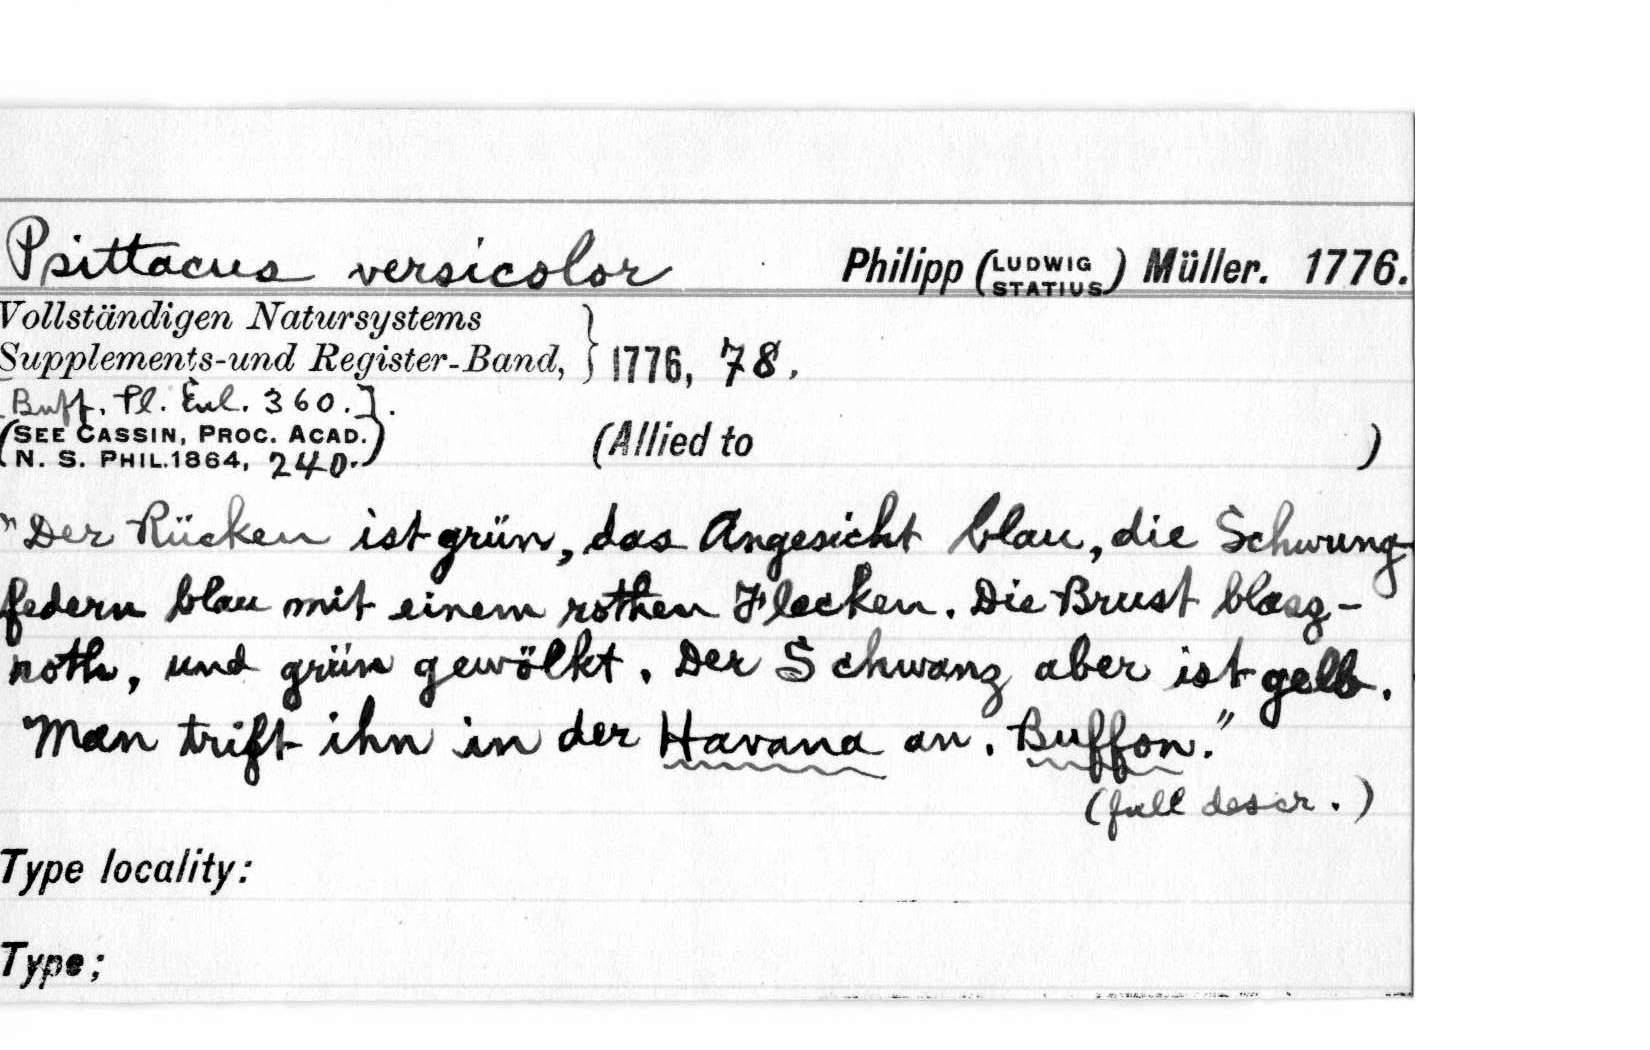 Psittacus versicolor Philipp (LUDWIG STATIUS) Müller. 1776.
Vollständigen Natursystems
Supplements-und Register-Band, } 1776, 78.
[Buff. Pl. Enl. 360.].
(SEE CASSIN, PROC. ACAD.
N. S. PHIL. 1864, 240.)
(Allied to )
"Der Rücken ist grün, das Angesicht blau, die Schwung
federn blau mit einem rothen Flecken. Die Brust blasz-
roth, und grün gewölkt. Der Schwanz aber ist gelb.
Man trift ihn in der Havana an. Buffon."
(full descr.)
Type locality:
Type;